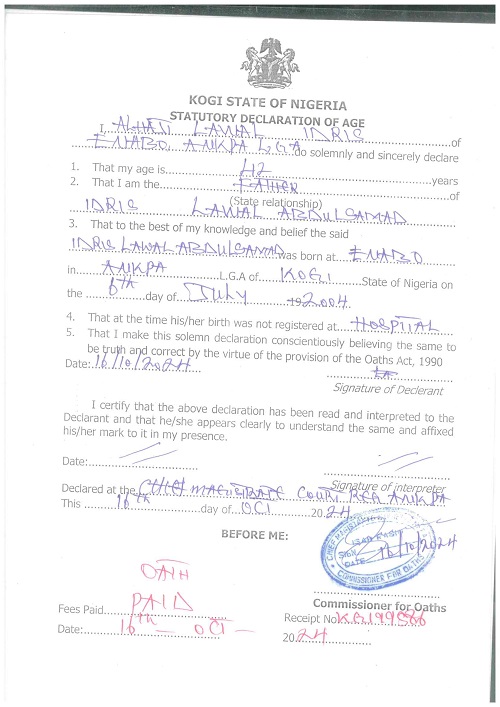 KOGI STATE OF NIGERIA
STATUTORY DECLARATION OF AGE
I, ALHAJI LAWAL IDRIS of
ENABO ANKPA LGA do solemnly and sincerely declare
1. That my age is 42 years
2. That I am the FATHER of
(State relationship)
IDRIS LAWAL ABDULSAMAD
3. That to the best of my knowledge and belief the said
IDRIS LAWAL ABDULSAMAD was born at ENABO
in ANKPA L.G.A of KOGI State of Nigeria on
the 6th day of JULY 19 2004.
4. That at the time his/her birth was not registered at HOSPTIAL
5. That I make this solemn declaration conscientiously believing the same to
be truth and correct by the virtue of the provision of the Oaths Act, 1990
Date: 16/10/2024
Signature of Declerant
I certify that the above declaration has been read and interpreted to the
Declarant and that he/she appears clearly to understand the same and affixed
his/her mark to it in my presence.
Date:
Signature of interpreter
Declared at the CHIEF MAGISTRATE COURT REG ANKPA
This 16th day of OCT 2024
BEFORE ME:
CHIEF MAGISTRATE
SIGN
DATE 16/10/2024
COMMISSIONER FOR OATHS
OATH
Commissioner for Oaths
Fees Paid PAID
Receipt No KG199586
Date: 16th — OCT —
2024